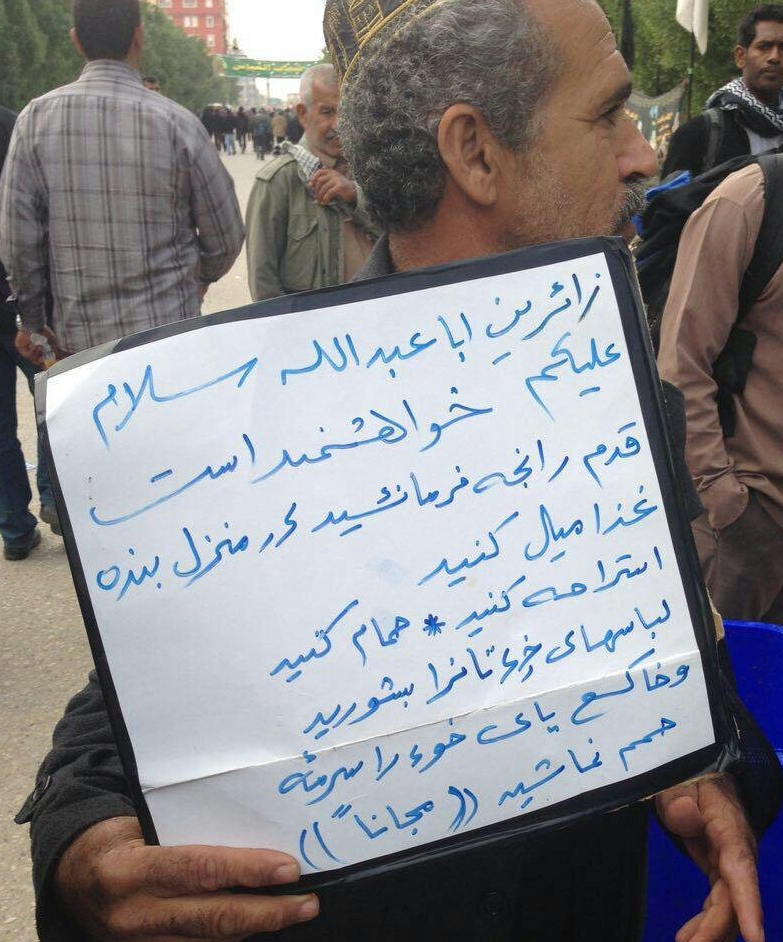 زائرین اباعبدالله سلام
علیکم خواهشمند است
قدم رانجه فرمائید در منزل بنده
غذا میل کنید
استراحه کنید * حمام کنید
لباسهای خود تانرا بشورید
وخاک پای خود را سرمئه
نمائید ((مجاناً))